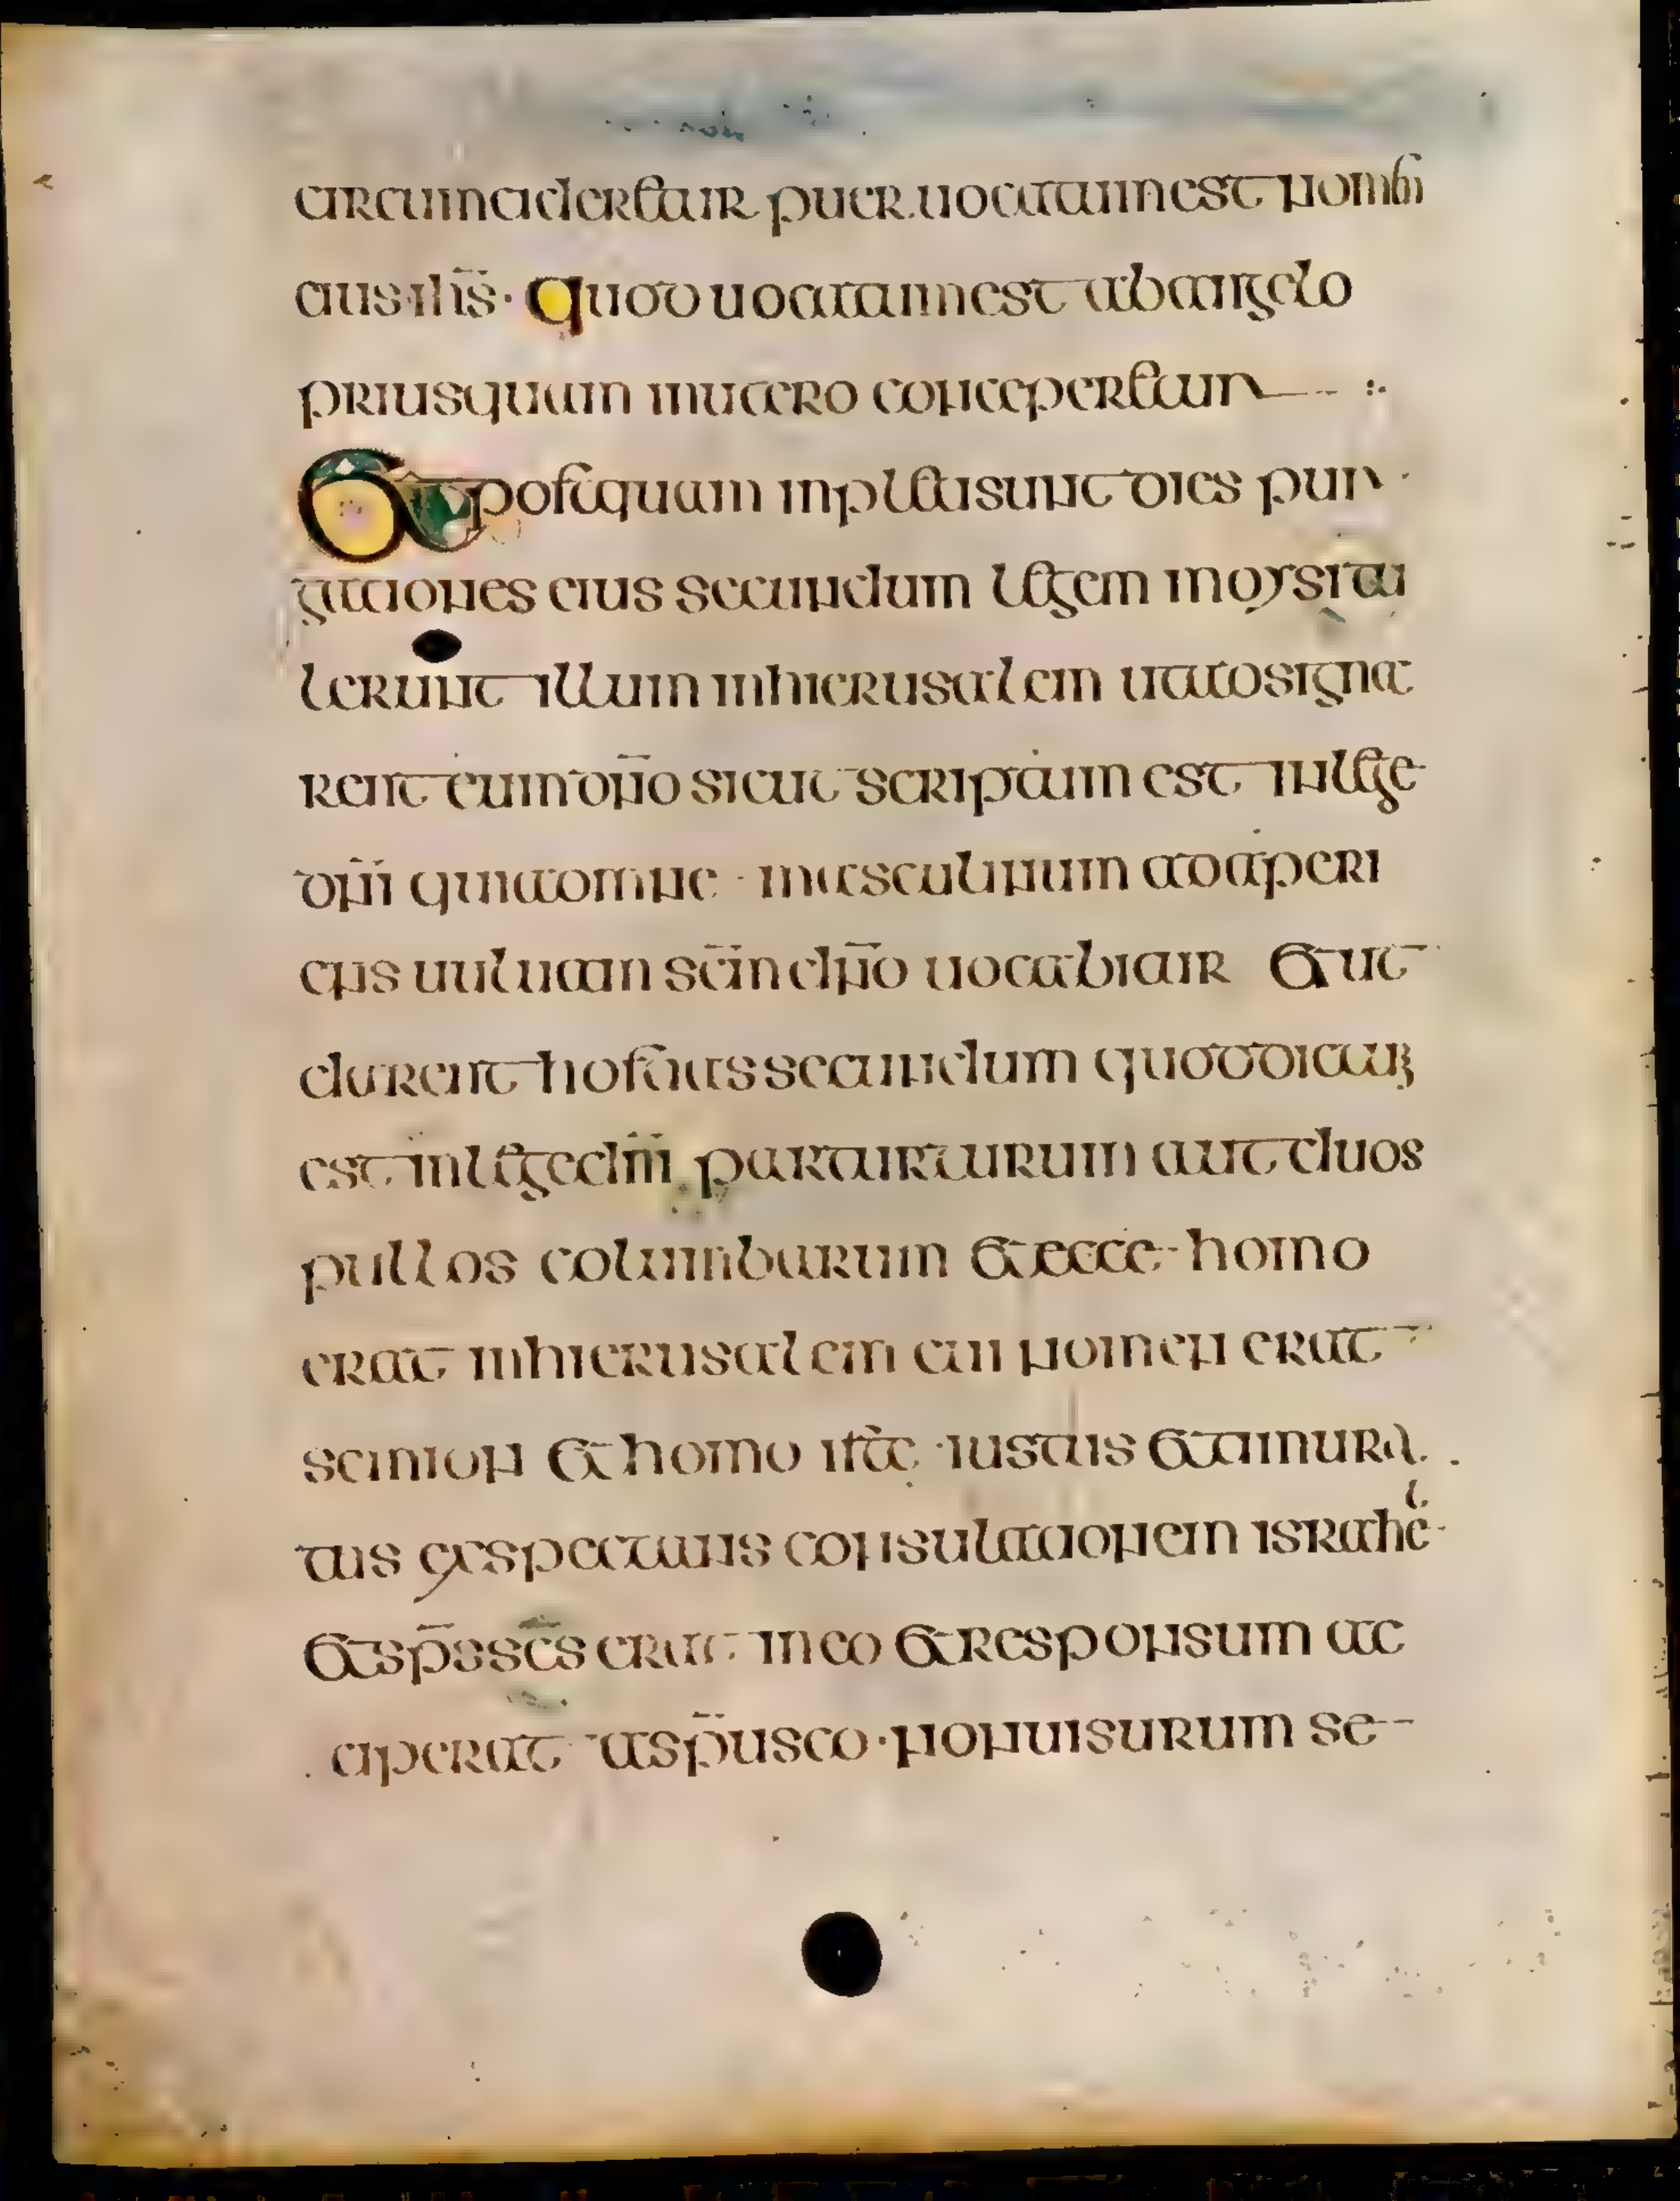 circumcideretur puer. uocatum est nomen
eius ihs̄· quod uocatum est ab angelo
priusquam in utero conciperetur :·
Et postquam inpleti sunt dies pur·
gationes eius secundum legem moysi tu
lerunt illum in hierusalem ut adsigna
rent eum dn̄o sicut scriptum est in lege
dn̄i quia omne · masculinum adaperi
ens uuluam sc̄m dn̄o uocabitur Et ut
darent hostias secundum quod dictum
est in lege dn̄i par turturum aut duos
pullos columbarum et ecce homo
erat in hierusalem cui nomen erat
semion et homo iste · iustus et timora
tus exspectans consulationem israhel
et sp̄s sc̄s erat in eo et responsum ac
ciperat a sp̄u sco · non uisurum se